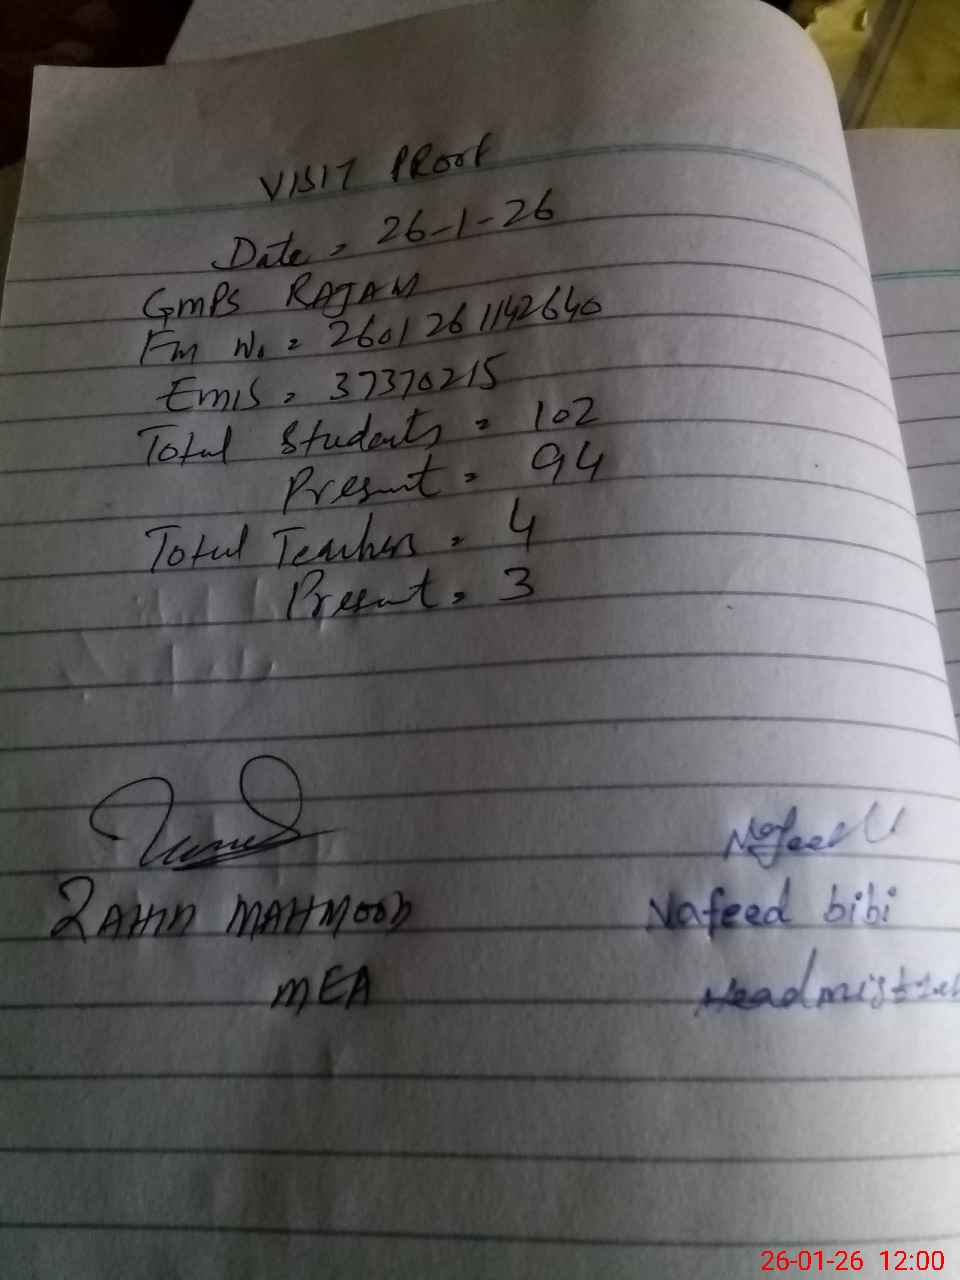 VISIT PROOF
Date = 26-1-26
GMPS RAJAM
Fm No = 2601261142640
Emis = 37370215
Total Students = 102
Present = 94
Total Teachers = 4
Present = 3
Nafeed
ZAHID MAHMOOD
Nafeed bibi
MEA
Headmistres
26-01-26 12:00